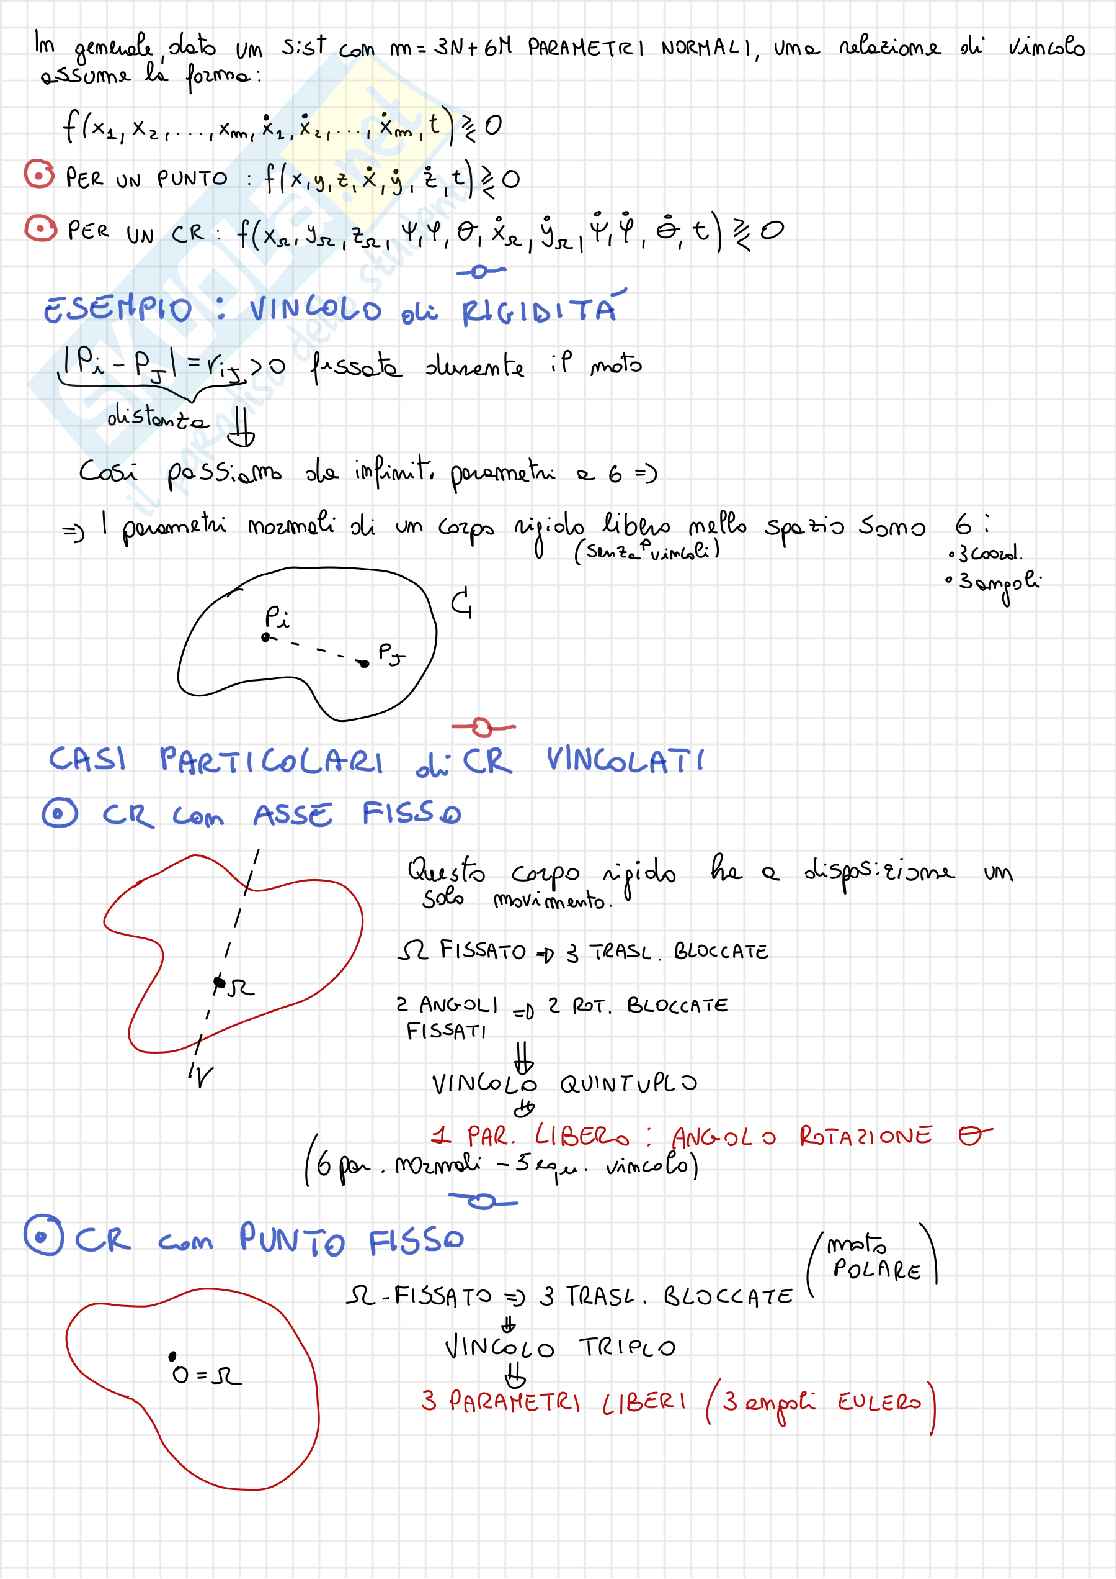 In generale, dato un sist con n = 3N + 6M PARAMETRI NORMALI, una relazione di vincolo
assume la forma:
f(x₁, x₂, ..., xₙ, ẋ₁, ẋ₂, ..., ẋₙ, t) ⪌ 0
PER UN PUNTO : f(x, y, z, ẋ, ẏ, ż, t) ⪌ 0
PER UN CR : f(x_Ω, y_Ω, z_Ω, ψ, φ, θ, ẋ_Ω, ẏ_Ω, ψ̇, φ̇, θ̇, t) ⪌ 0
ESEMPIO : VINCOLO di RIGIDITÁ
|Pi - PJ| = riJ > 0 fissata durante il moto
distanza ⇓
Così passiamo da infiniti parametri a 6 =>
=> I parametri normali di un corpo rigido libero nello spazio sono 6 :
(senza vincoli)
• 3 coord.
• 3 angoli
Pi
PJ
CASI PARTICOLARI di CR VINCOLATI
CR con ASSE FISSO
Questo corpo rigido ha a disposizione un
solo movimento.
Ω FISSATO => 3 TRASL. BLOCCATE
Ω
2 ANGOLI => 2 ROT. BLOCCATE
FISSATI
⇓
VINCOLO QUINTUPLO
⇓
1 PAR. LIBERO : ANGOLO ROTAZIONE θ
(6 par. normali - 5 equ. vincolo)
CR con PUNTO FISSO
(moto
POLARE)
Ω - FISSATO => 3 TRASL. BLOCCATE
⇓
VINCOLO TRIPLO
⇓
O = Ω
3 PARAMETRI LIBERI (3 angoli EULERO)
SKUOLA.net
il paradiso dello studente